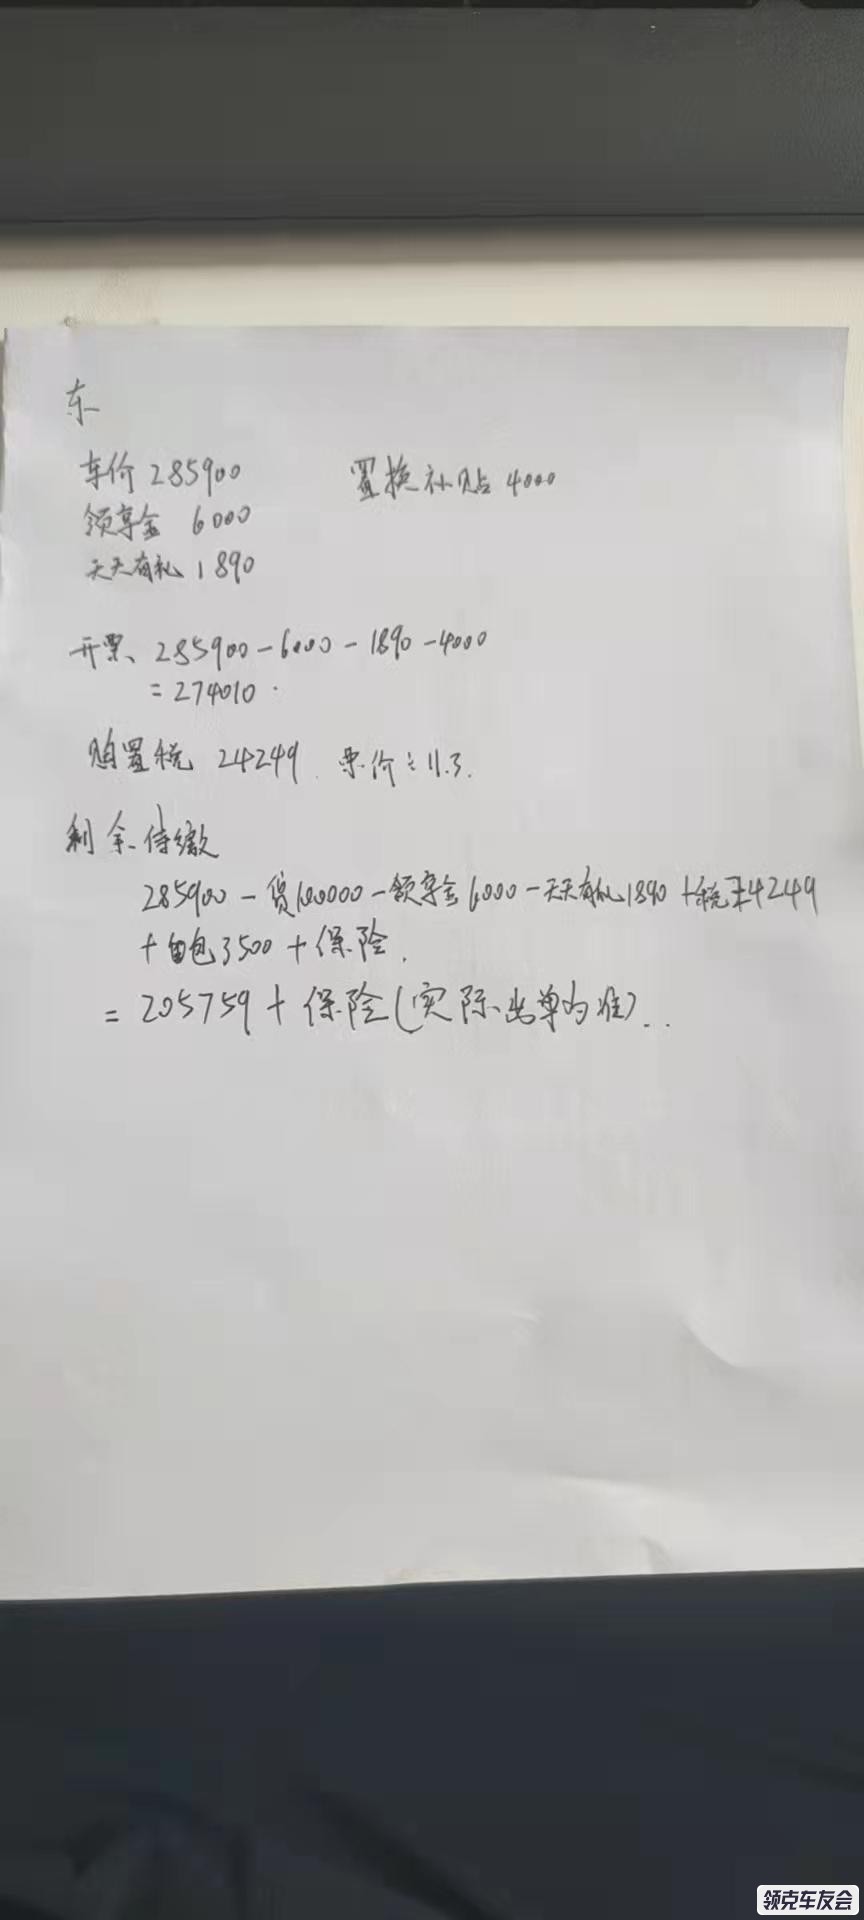 东
车价 285900 置换补贴 4000
领享金 6000
天天有礼 1890
开票、285900-6000-1890-4000
=274010.
购置税 24249. 票价÷11.3.
剩余待缴
285900-贷100000-领享金6000-天天有礼1890+税24249
+自包3500+保险.
=205759+保险(实际出单为准)...
领克车友会